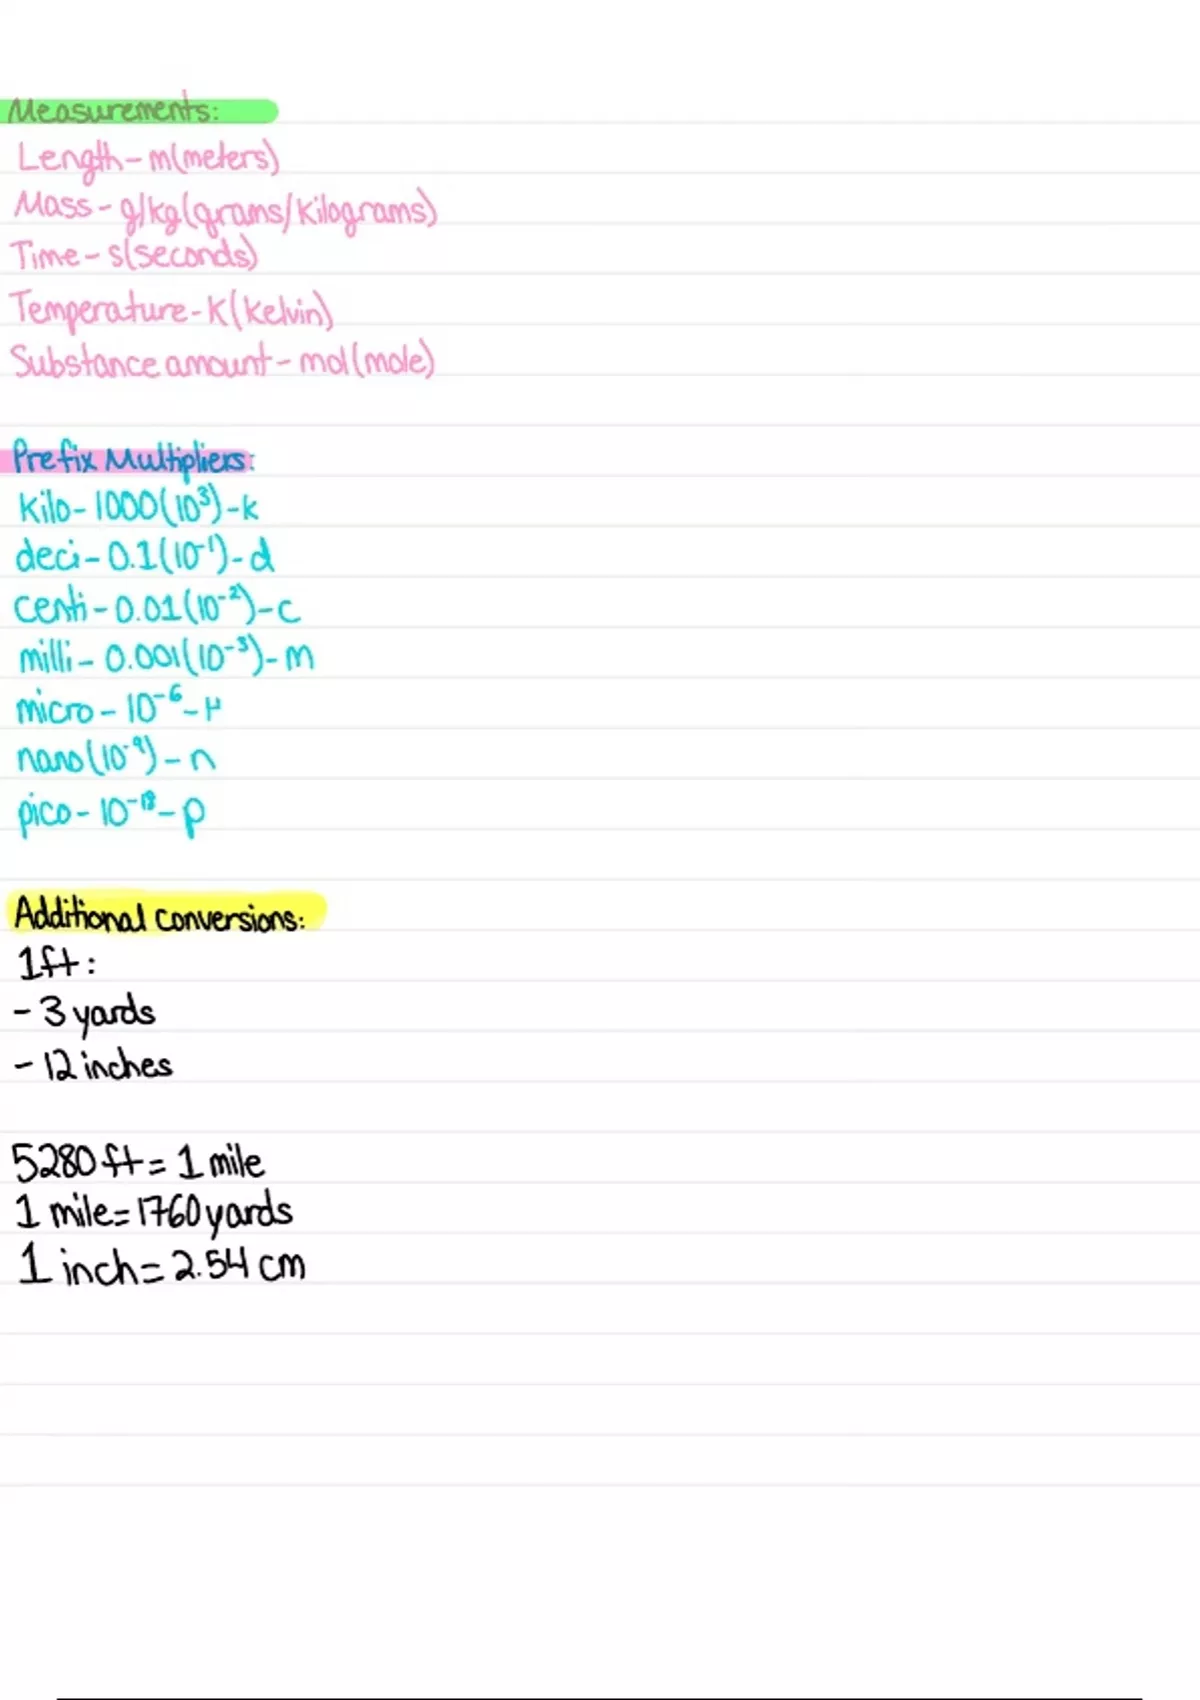 Measurements:
Length - m(meters)
Mass - g/kg(grams/kilograms)
Time - s(seconds)
Temperature - K(kelvin)
Substance amount - mol(mole)
Prefix Multipliers:
kilo - 1000(10³) - k
deci - 0.1(10⁻¹) - d
centi - 0.01(10⁻²) - c
milli - 0.001(10⁻³) - m
micro - 10⁻⁶ - μ
nano(10⁻⁹) - n
pico - - p
Additional conversions:
1ft:
- 3 yards
- 12 inches
5280 ft = 1 mile
1 mile = 1760 yards
1 inch = 2.54 cm